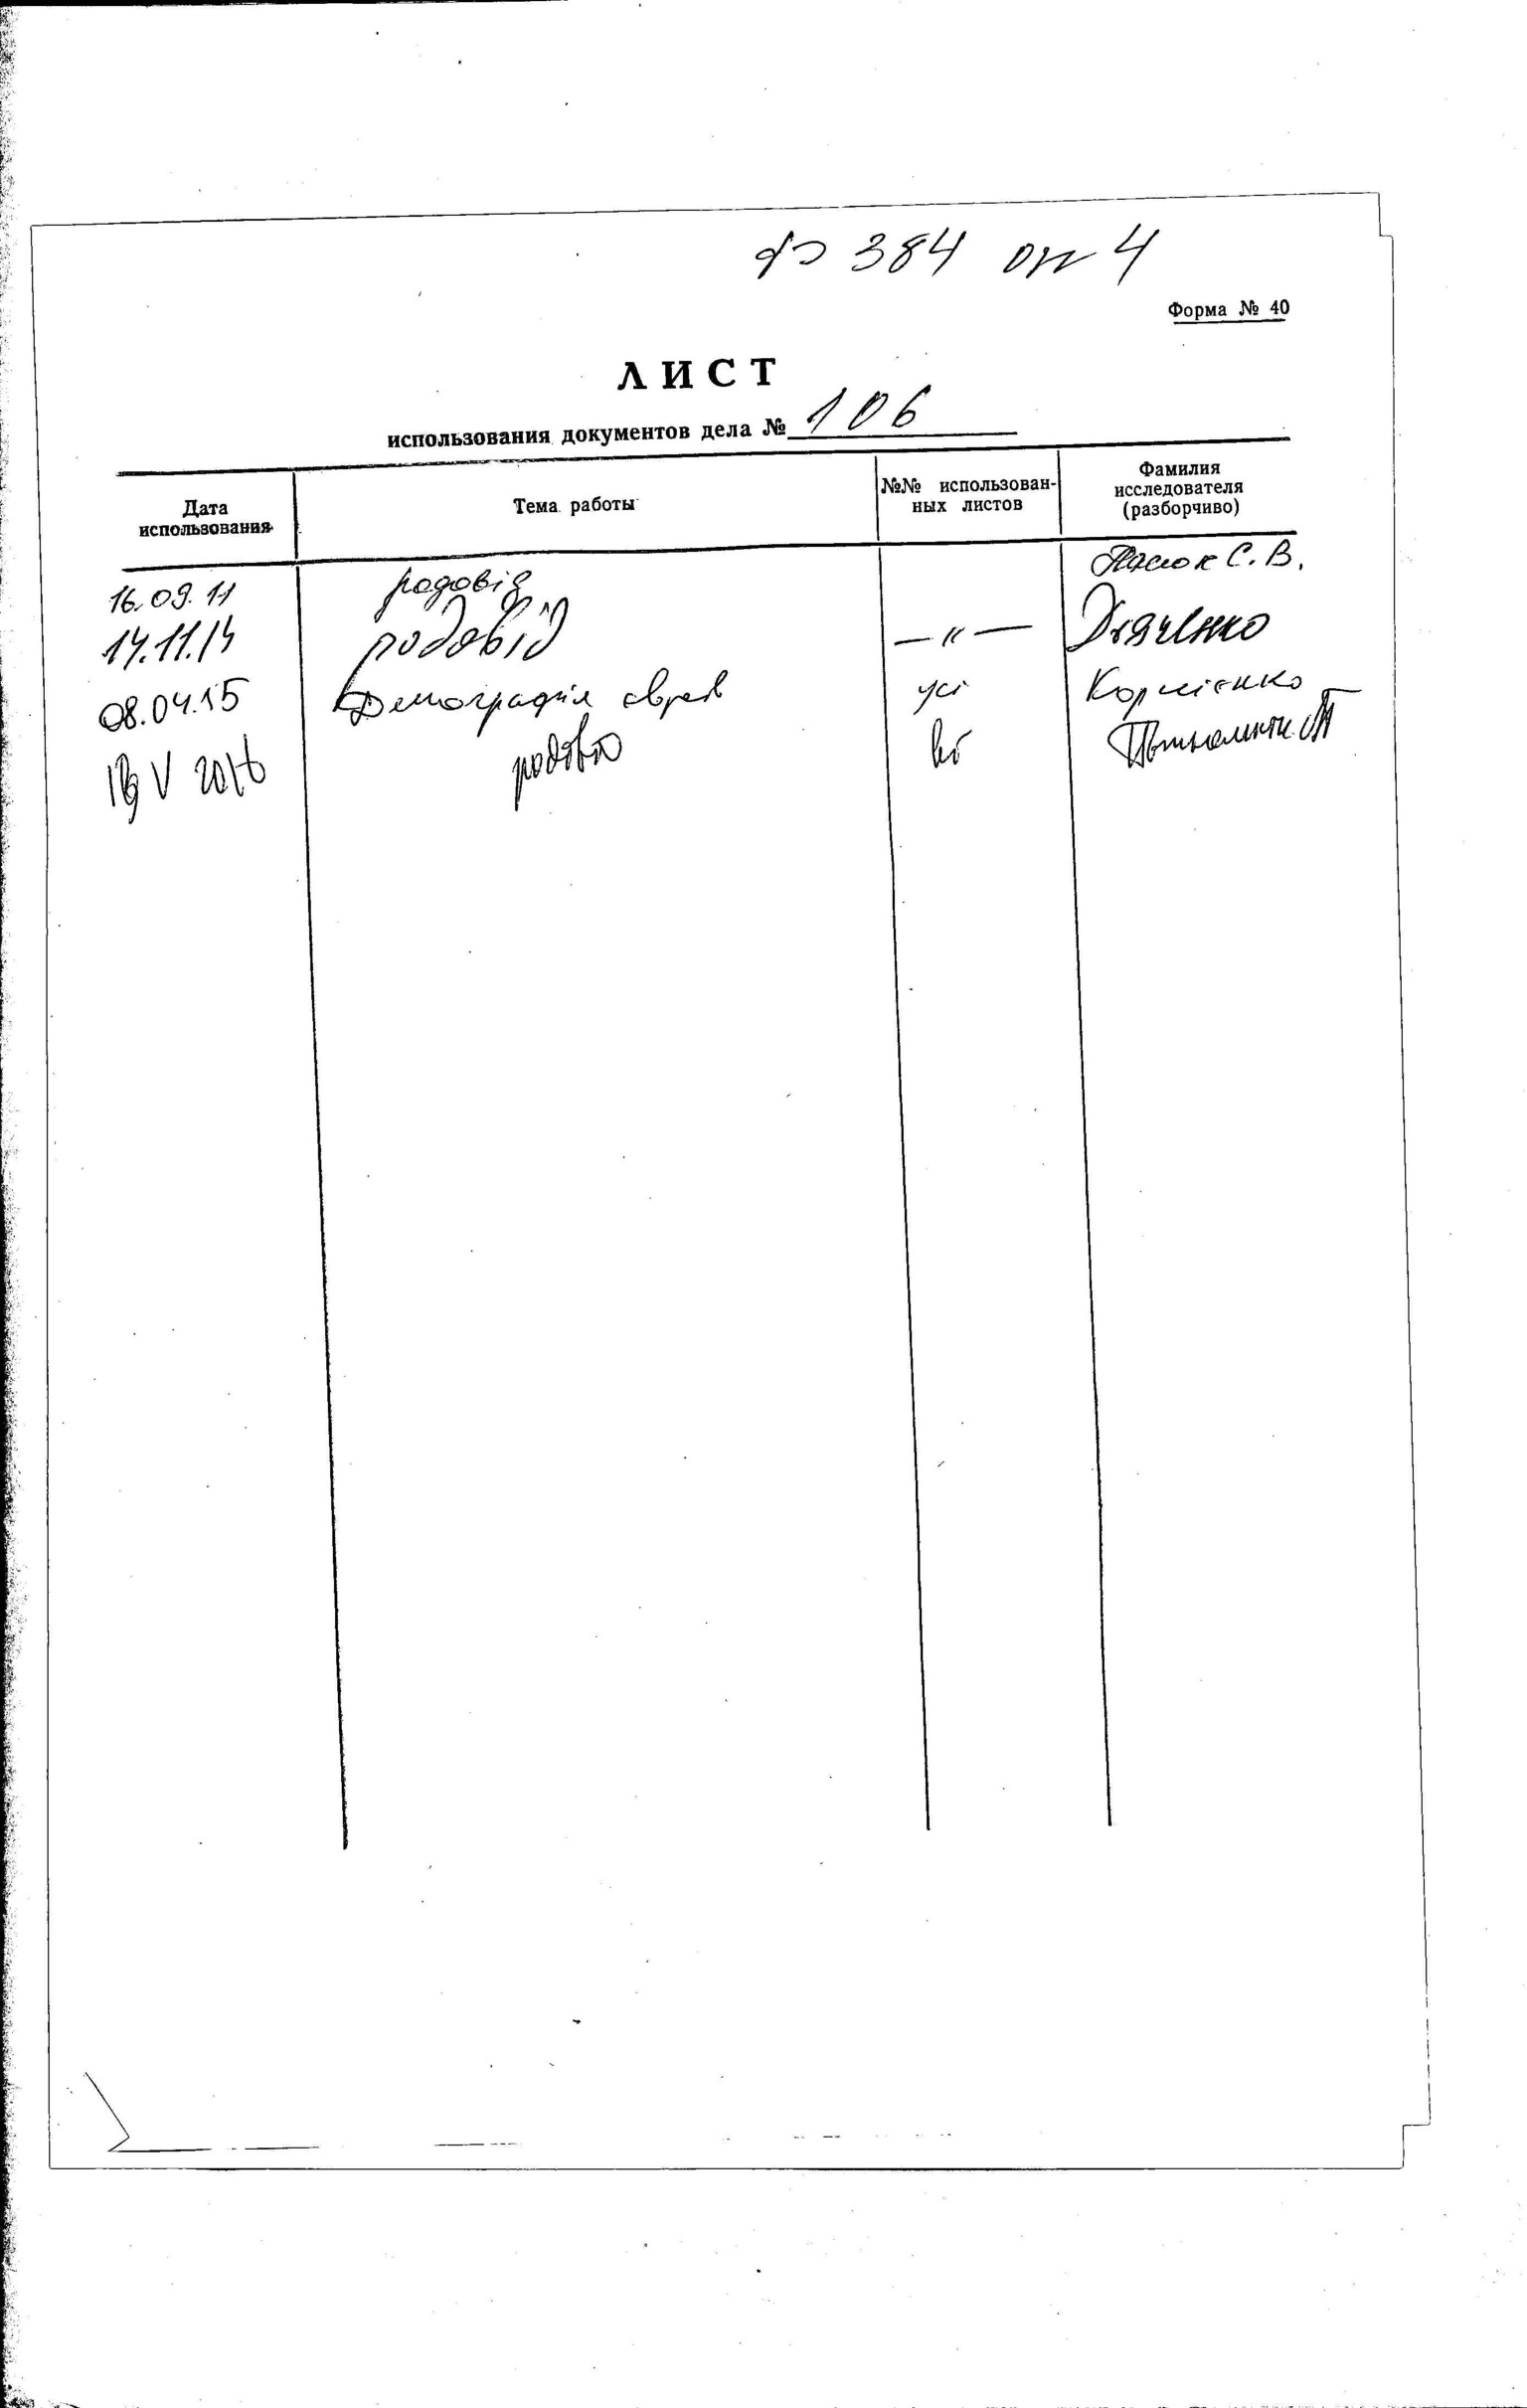 ф 384 оп 4
Форма № 40
ЛИСТ
использования документов дела № 106
Дата использования
Тема работы
№№ использован-
ных листов
Фамилия
исследователя
(разборчиво)
16.09.11 родовід С. В.
14.11.14 родовід —〃— Дяченко
08.04.15 Демографія євреїв усі Корнієнко
V 2016 родовід всі